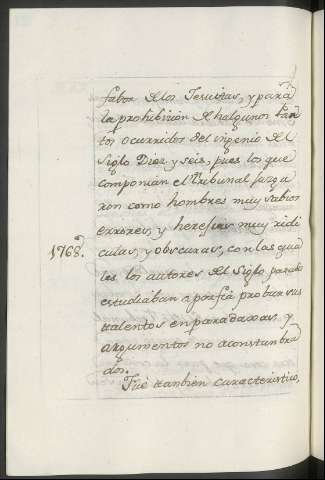 fabor de los Jesuitas, y para
la prohibicion de halgunos tan
tos ocurridos del ingenio del
Siglo Diez y seis, pues los que
componian el tribunal juzga
ron como hombres muy sabios
errores, y heresias muy ridi
culas, y obscuras, con las qua
1768.
les los autores del Siglo pasado
estudiaban a porfia probar sus
talentos en paradoxas y
argumentos no acostunbra
dos.
Fue tanbien caracteristico,